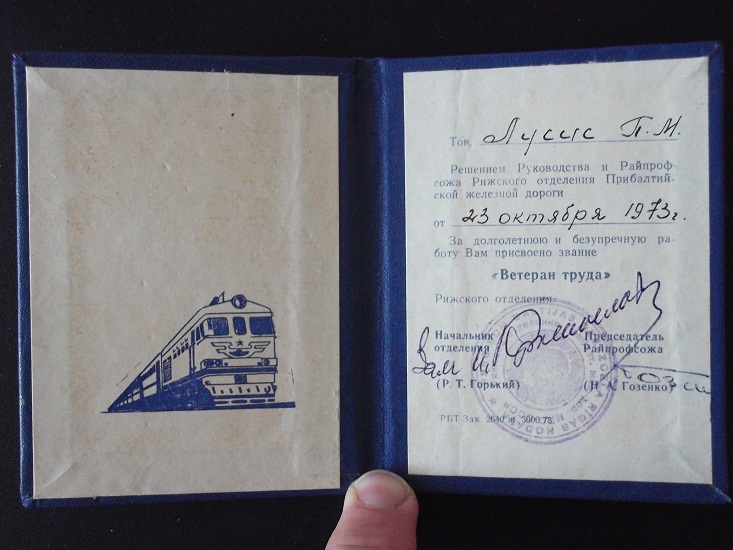 Тов. Лусис П. М.
Решением Руководства и Райпроф-
сожа Рижского отделения Прибалтий-
ской железной дороги
от 23 октября 1973 г.
За долголетнюю и безупречную ра-
боту Вам присвоено звание
«Ветеран труда»
Рижского отделения:
Начальник отделения
Председатель Райпрофсожа
Зам
(Р. Т. Горький)
(Н. А. Гозенко)
РБТ Зак. 2640 т. 3000 73.